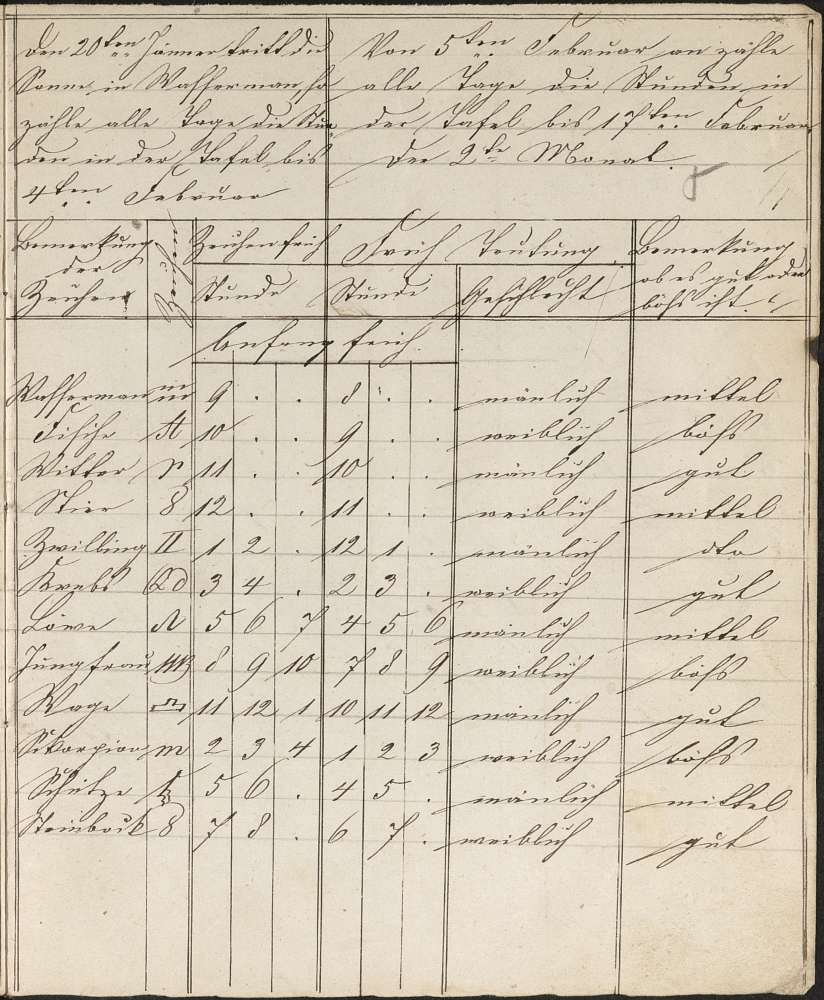 Den 20ten Jänner tritt die
Sonne in Wasserman so
zähle alle Tage die Stun
den in der Tafel bis
4ten Februar
Von 5ten Februar an zähle
alle Tage die Stunden in
der Tafel bis 17ten Februar
Der 2te Monat
Bemerkung
der
Zeichen
Zeichen
Zeichen früh
Stunde
Früh
Stunde
Deutung
Geschlecht
Bemerkung
ob es gut oder
böhs ist.
Anfang früh.
Wasserman ♒ 9 . . 8 . . mänlich mittel
Fische 10 . . 9 . . weiblich böhs
Witter ♈ 11 . . 10 . . mänlich gut
Stier 8 12 . . 11 . . weiblich mittel
Zwilling II 1 2 . 12 1 . mänlich dto
Krebs ♋ 3 4 . 2 3 . weiblich gut
Löwe ♌ 5 6 7 4 5 6 mänlich mittel
Jungfrau ♍ 8 9 10 7 8 9 weiblich böhs
Wage ♎ 11 12 1 10 11 12 mänlich gut
Skorpion m 2 3 4 1 2 3 weiblich böhs
Schütze 5 6 . 4 5 . mänlich mittel
Steinbock 8 7 8 . 6 7 . weiblich gut